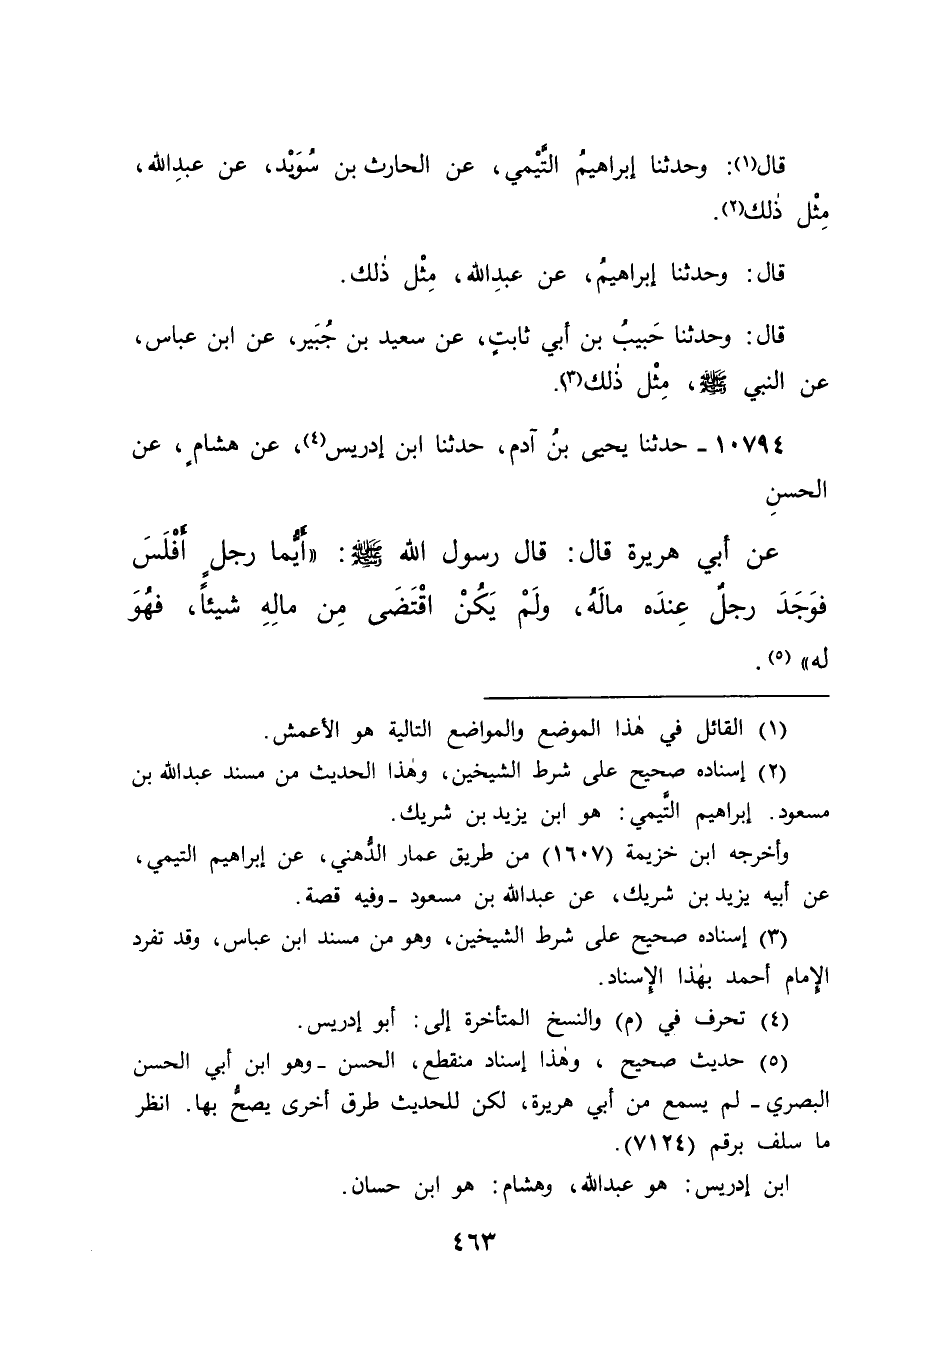 قال(١): وحدثنا إبراهيمُ التَّيْمي، عن الحارث بن سُوَيْد، عن عبدِالله،
مِثْل ذٰلك(٢).
قال: وحدثنا إبراهيمُ، عن عبدِالله، مِثْل ذٰلك.
قال: وحدثنا حَبيبُ بن أبي ثابتٍ، عن سعيد بن جُبَير، عن ابن عباس،
عن النبي ﷺ، مِثْل ذٰلك(٣).
١٠٧٩٤ - حدثنا يحيى بنُ آدم، حدثنا ابن إدريس(٤)، عن هشامٍ، عن
الحسنِ
عن أبي هريرة قال: قال رسول الله ﷺ: «أَيُّما رجلٍ أَفْلَسَ
فوَجَدَ رجلٌ عِندَه مالَهُ، ولَمْ يَكُنْ اقْتَضَى مِن مالِهِ شيئاً، فهُوَ
له» (٥).
(١) القائل في هٰذا الموضع والمواضع التالية هو الأعمش.
(٢) إسناده صحيح على شرط الشيخين، وهٰذا الحديث من مسند عبدالله بن
مسعود. إبراهيم التَّيمي: هو ابن يزيد بن شريك.
وأخرجه ابن خزيمة (١٦٠٧) من طريق عمار الدُّهني، عن إبراهيم التيمي،
عن أبيه يزيد بن شريك، عن عبدالله بن مسعود - وفيه قصة.
(٣) إسناده صحيح على شرط الشيخين، وهو من مسند ابن عباس، وقد تفرد
الإمام أحمد بهٰذا الإسناد.
(٤) تحرف في (م) والنسخ المتأخرة إلى: أبو إدريس.
(٥) حديث صحيح ، وهٰذا إسناد منقطع، الحسن - وهو ابن أبي الحسن
البصري - لم يسمع من أبي هريرة، لكن للحديث طرق أخرى يصحُّ بها. انظر
ما سلف برقم (٧١٢٤).
ابن إدريس: هو عبدالله، وهشام: هو ابن حسان.
٤٦٣